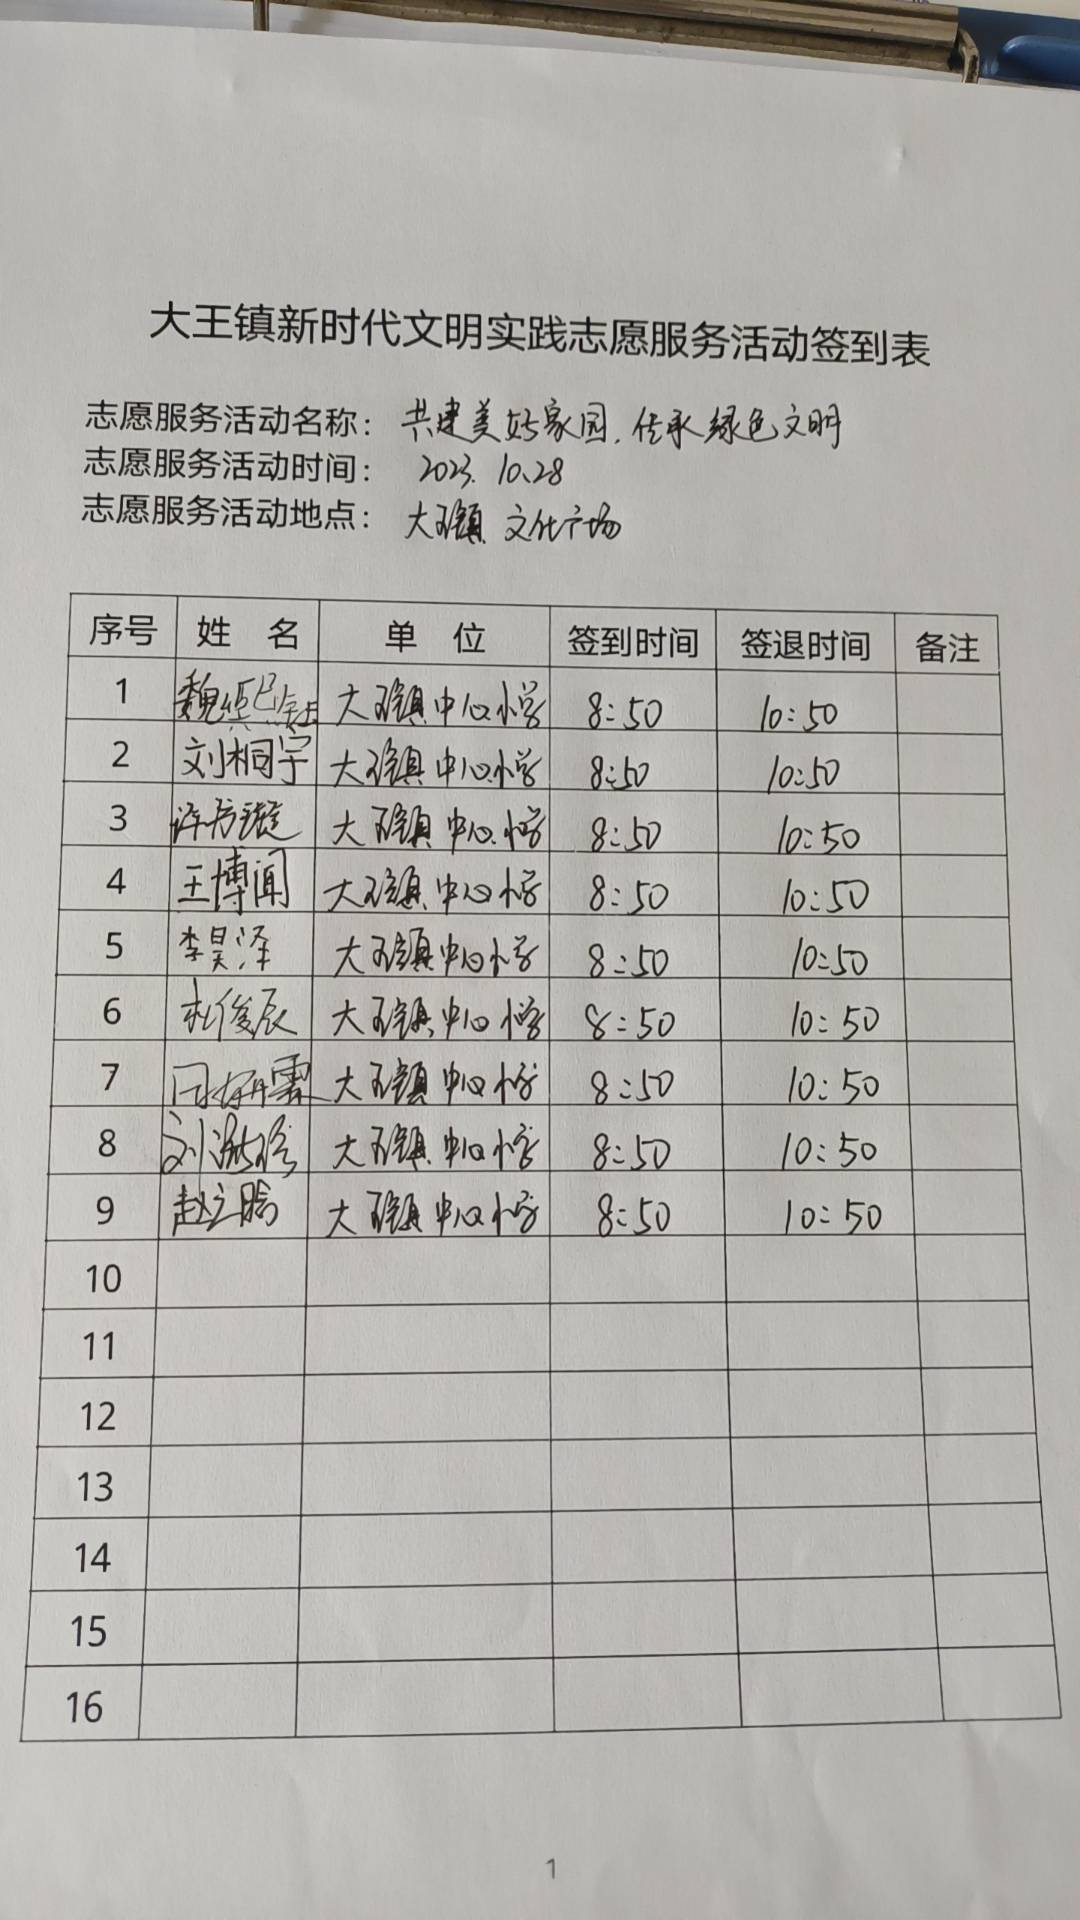 大王镇新时代文明实践志愿服务活动签到表
志愿服务活动名称：共建美好家园，传承绿色文明
志愿服务活动时间：2023.10.28
志愿服务活动地点：大王镇文化广场
序号 姓 名 单 位 签到时间 签退时间 备注
1 魏 大王镇中心小学 8:50 10:50
2 刘桐宇 大王镇中心小学 8:50 10:50
3 大王镇中心小学 8:50 10:50
4 王博闻 大王镇中心小学 8:50 10:50
5 李昊泽 大王镇中心小学 8:50 10:50
6 杜俊辰 大王镇中心小学 8:50 10:50
7 大王镇中心小学 8:50 10:50
8 刘 大王镇中心小学 8:50 10:50
9 赵立晗 大王镇中心小学 8:50 10:50
10
11
12
13
14
15
16
1